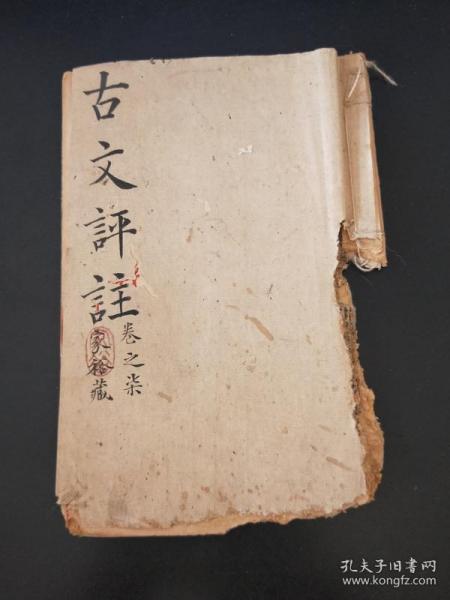 古文評註
卷之柒
家裕藏
孔夫子旧书网
www.kongfz.com